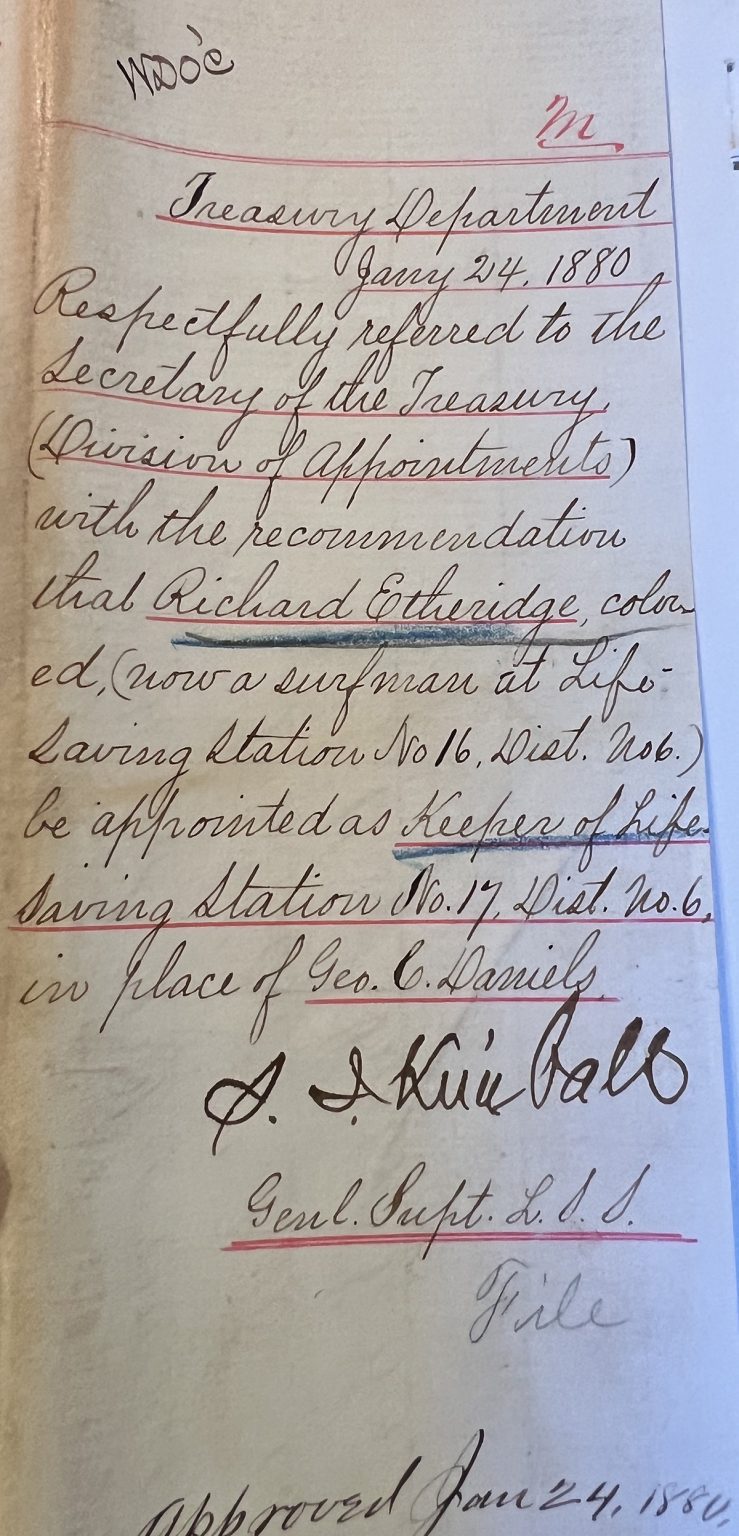 WDO'C
M
Treasury Department
Jany 24, 1880
Respectfully referred to the
Secretary of the Treasury,
(Division of Appointments)
with the recommendation
that Richard Etheridge, color-
ed, (now a surfman at Life-
Saving Station No 16, Dist. No 6.)
be appointed as Keeper of Life-
Saving Station No. 17, Dist. No. 6,
in place of Geo. C. Daniels.
S. I. Kimball
Genl. Supt. L. S. S.
File
Approved Jan 24, 1880.